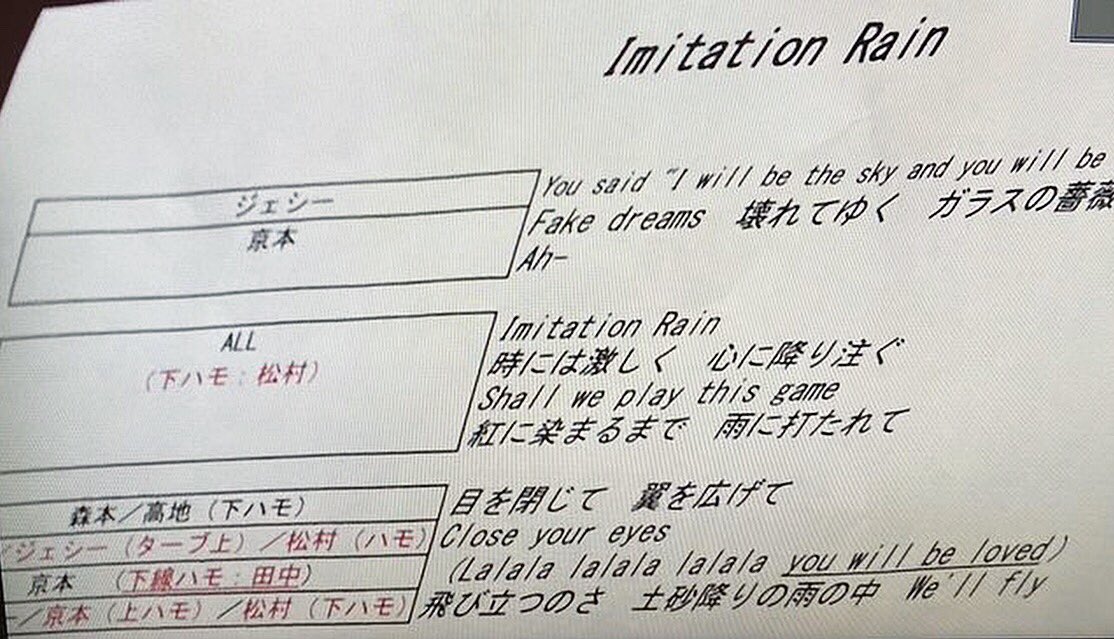 Imitation Rain
ジェシー You said "I will be the sky and you will be
京本 Fake dreams 壊れてゆく ガラスの薔薇
Ah-
ALL Imitation Rain
(下ハモ:松村) 時には激しく 心に降り注ぐ
Shall we play this game
紅に染まるまで 雨に打たれて
森本/高地(下ハモ) 目を閉じて 翼を広げて
/ジェシー(ターブ上)/松村(ハモ) Close your eyes
京本 (下線ハモ:田中) (Lalala lalala lalala you will be loved)
/京本(上ハモ)/松村(下ハモ) 飛び立つのさ 土砂降りの雨の中 We'll fly